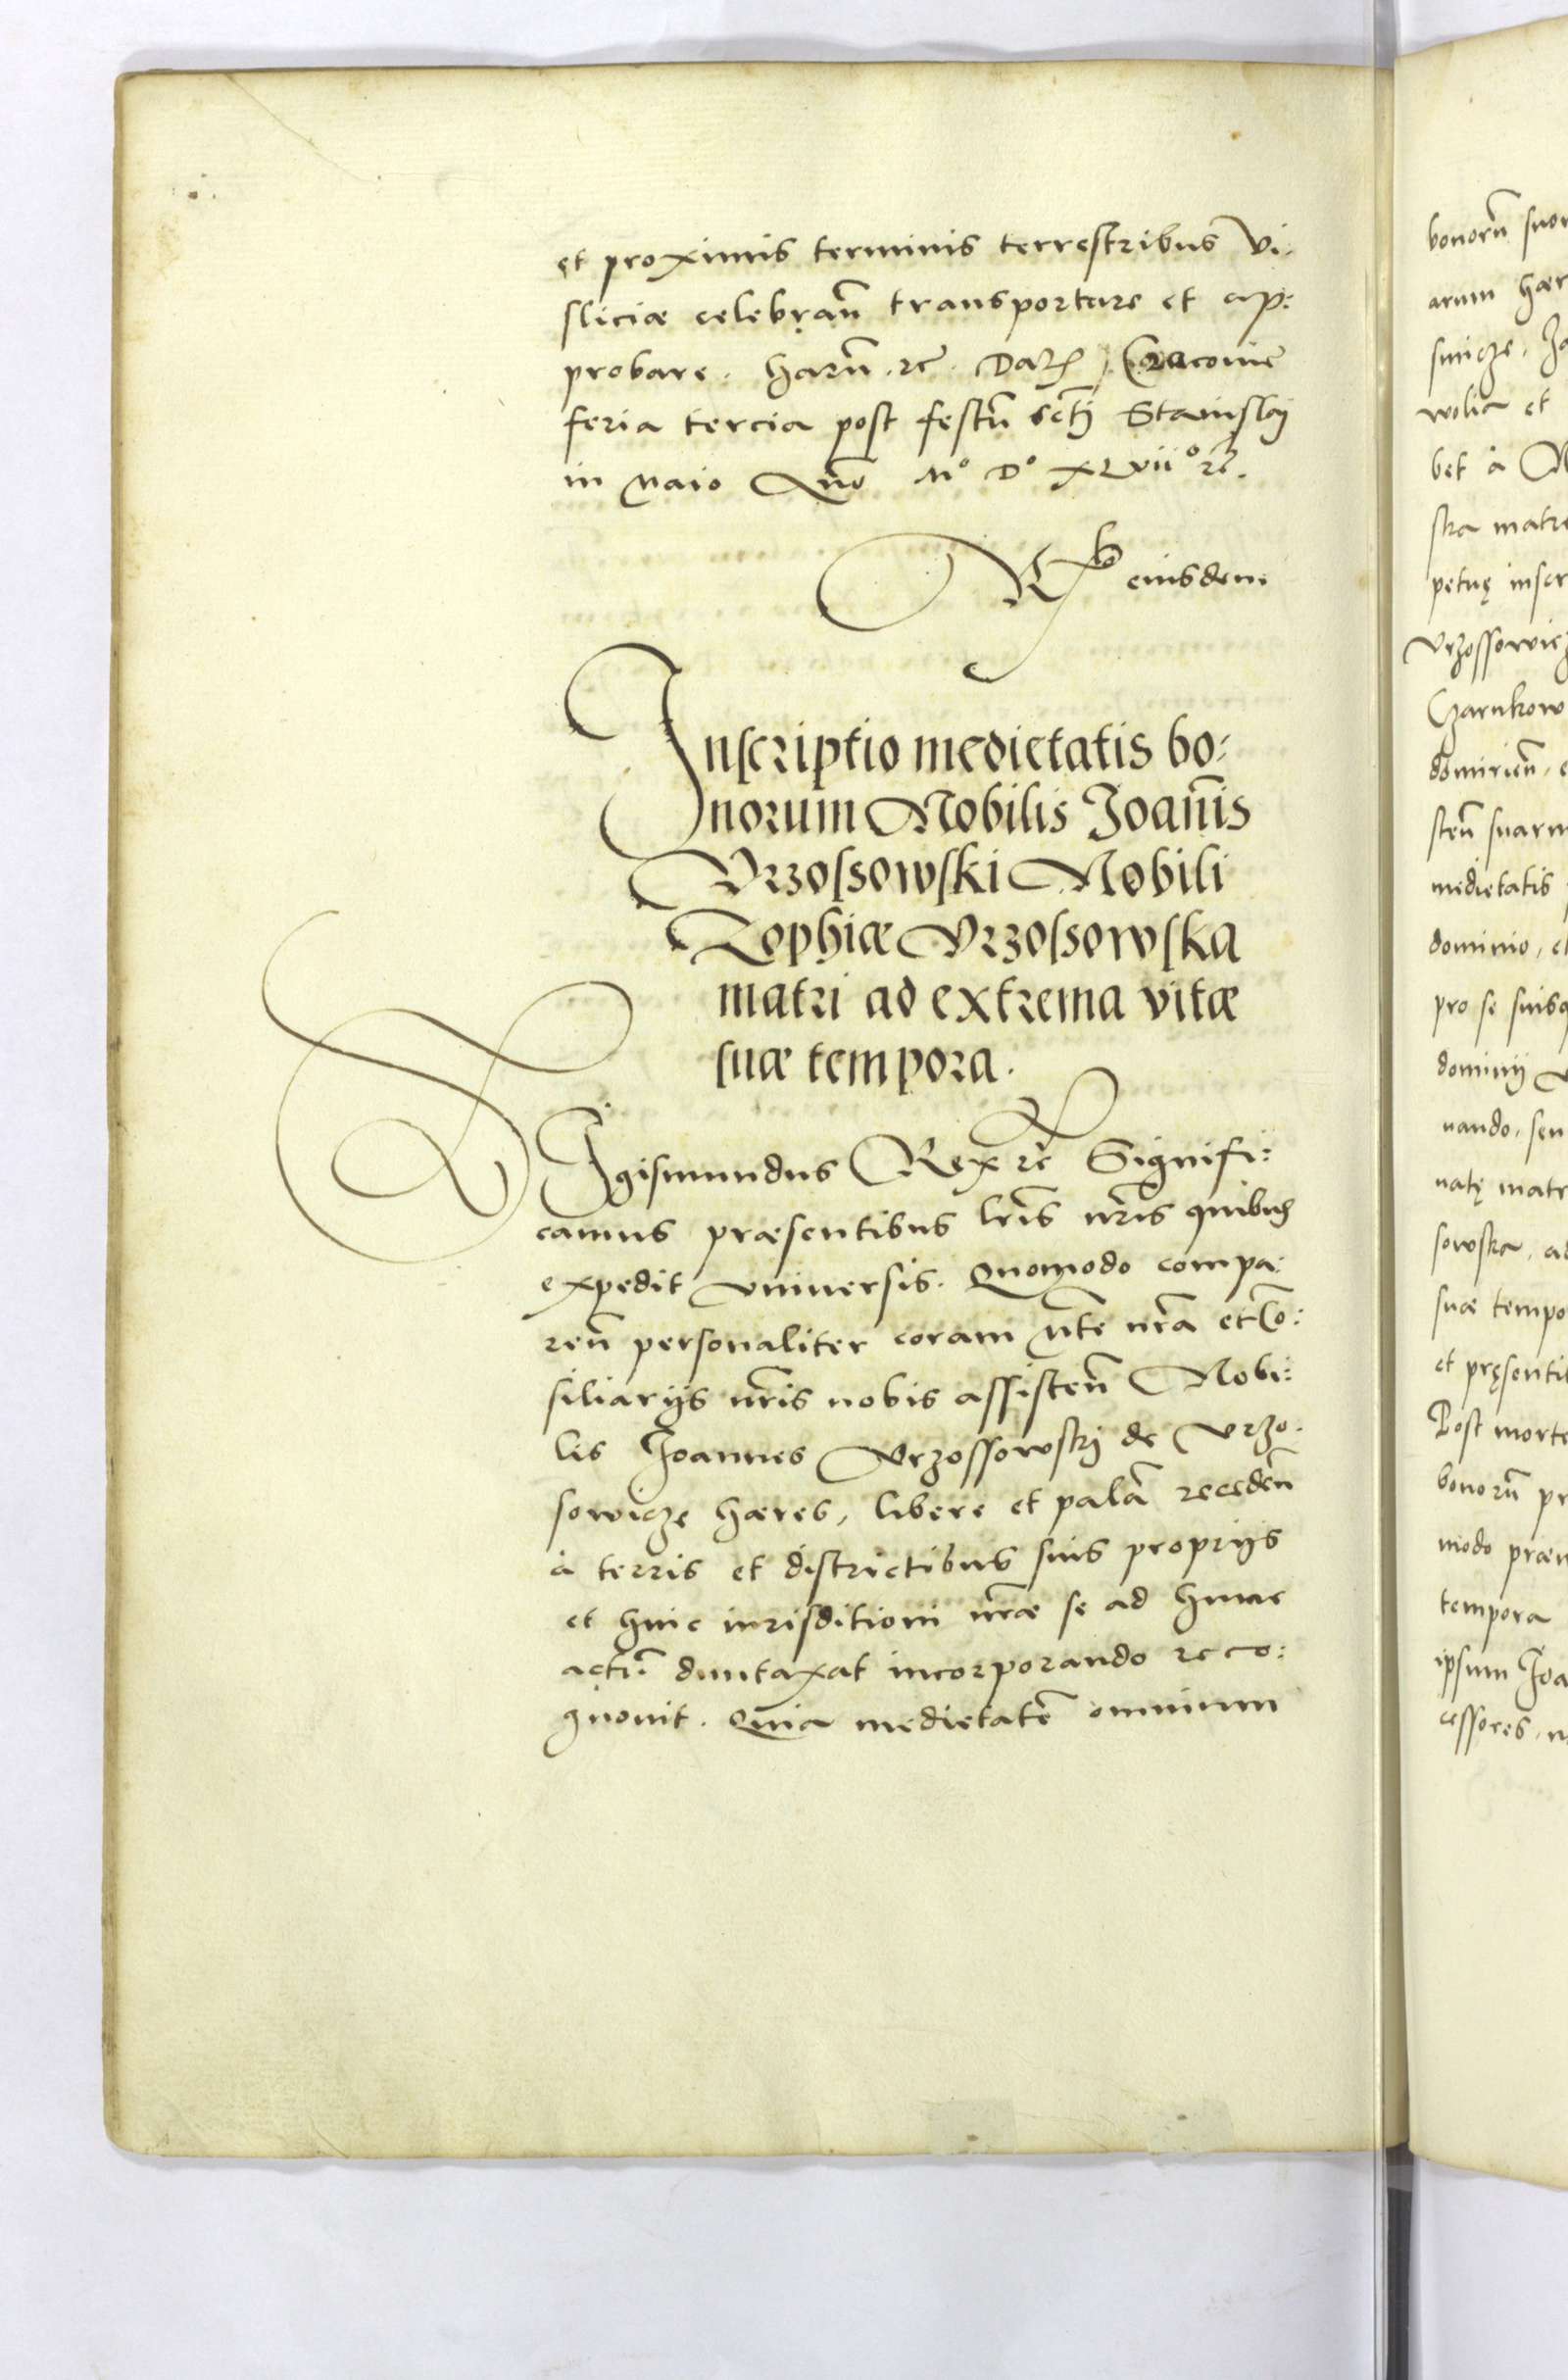 et proximis terminis terrestribus Vi-
sliciæ celebran̄ transportare et ap:
probare. Harū. rc̄. Datꝭ Cracouie
feria tercia post festū sctī Stanislaj
in Maio Anno Mº Dº XLviiº rc̄.
Rᵗᵒ eiusdem
Inscriptio medietatis bo:
norum Nobilis Joañis
Vrzossowski Nobili
Zophiæ Vrzossowska
matri ad extrema vitæ
suæ tempora.
Sigismundus Rex rc̄ Signifi:
camus præsentibus lr̄is nr̄is quibus
expedit vniuersis. Quomodo compa:
ren̄ personaliter coram M̄te nr̄a et Co:
siliarijs nr̄is nobis assisten̄ Nobi:
lis Joannes Vrzossowskj de Vrzo-
sowicze hæres, libere et palā receden̄
à terris et districtibus suis proprijs
et huic iurisditioni nr̄æ se ad hunc
actū duntaxat incorporando reco:
gnouit. Quia medietatē omnium
bonorū suor
arum hær
wolia et
bet à
stra matre
petuę inscr
Vrzossowicz
Czarnkow
domirien̄, e
sten̄ suarum
medietatis
dominio, et
pro se suisq
dominij
nando, seu
natę matr
sowska, ad
suæ tempo
et pręsentib
Post morte
bonorū pr
modo præm
tempora
ipsum Joa
cessores, n